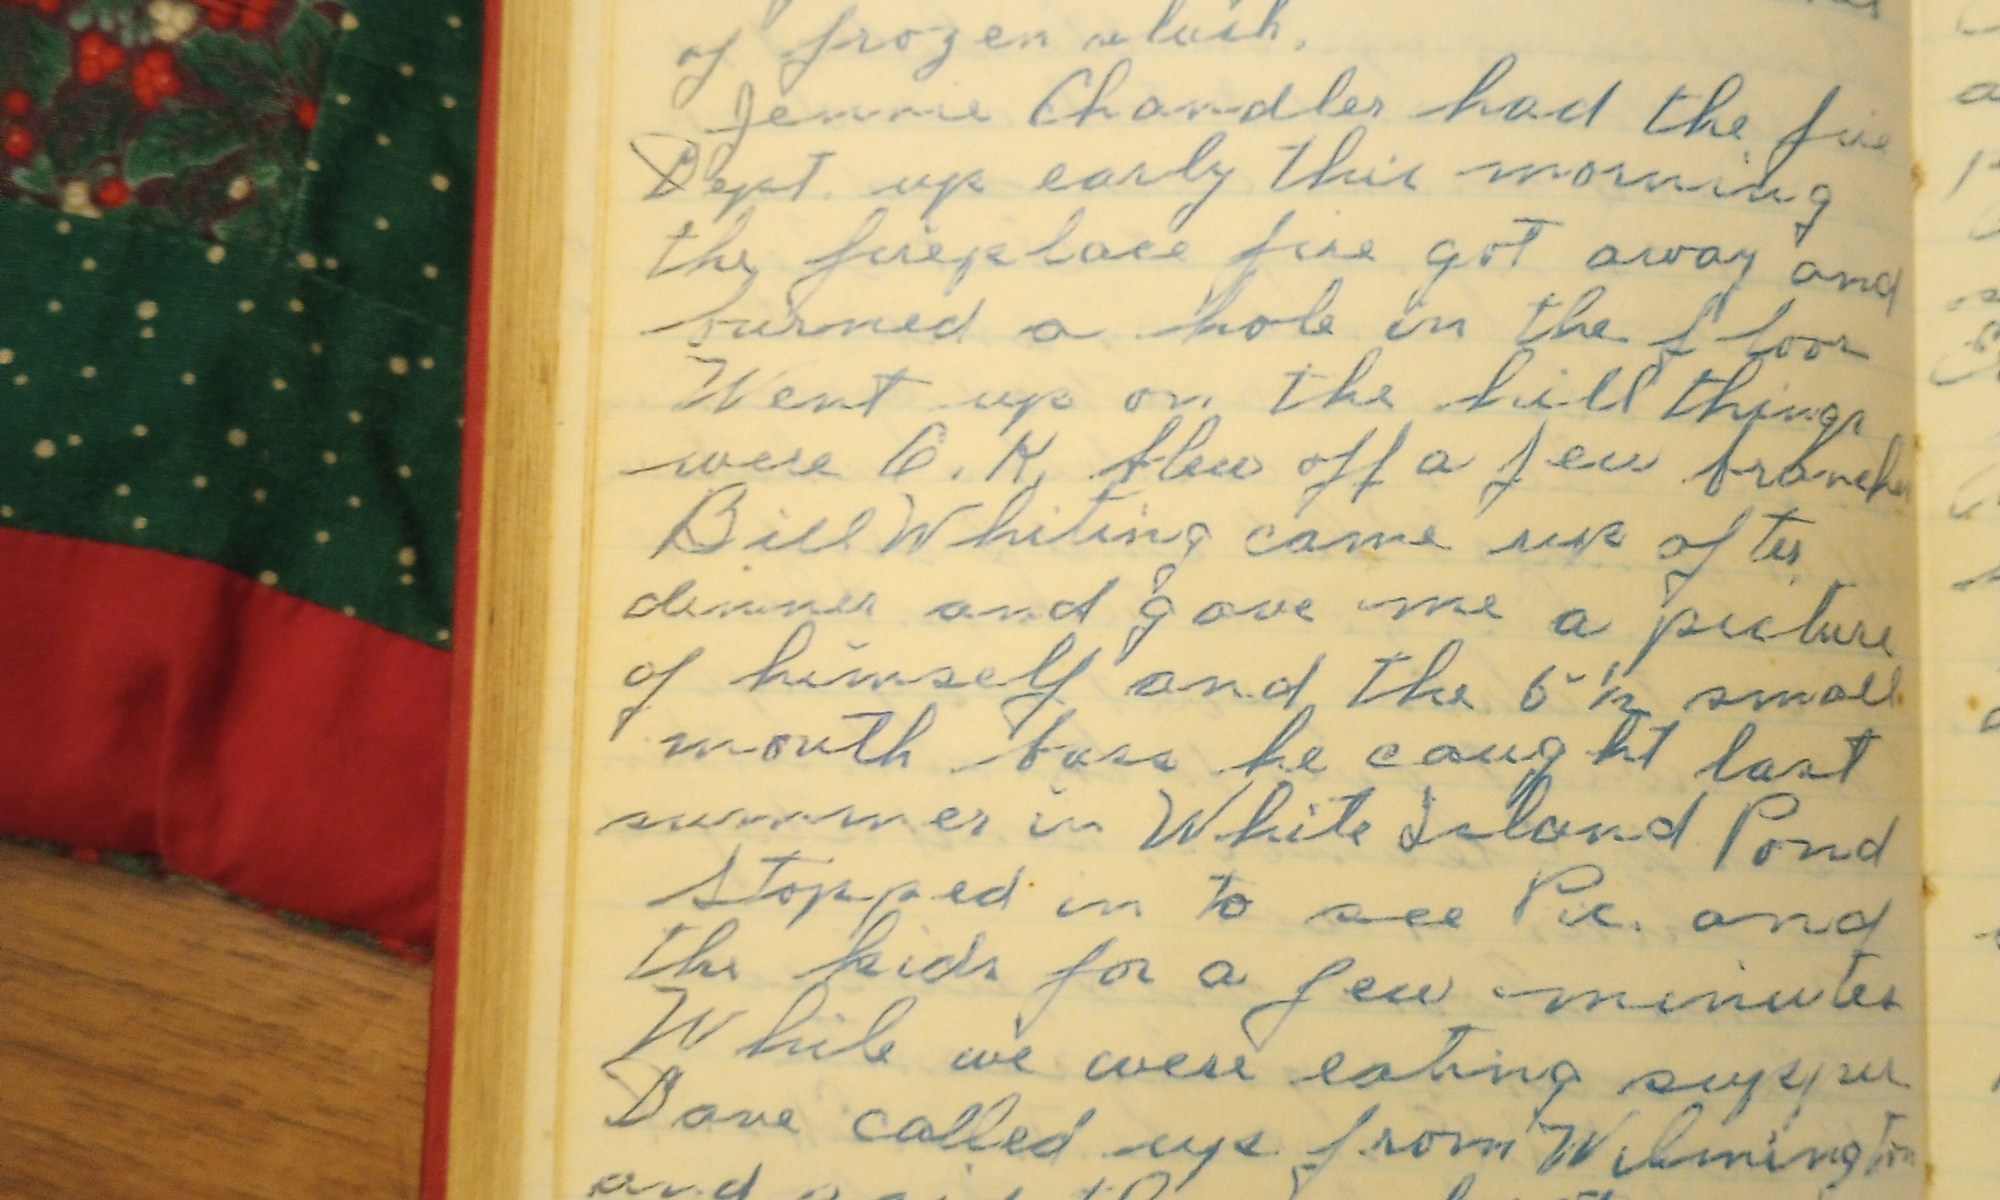 of frozen slush.
Jennie Chandler had the fire
Dept. up early this morning
the fireplace fire got away and
burned a hole in the floor
Went up on the hill things
were O.K. blew off a few branches
Bill Whiting came up after
dinner and gave me a picture
of himself and the 5 1/2 small
mouth bass he caught last
summer in White Island Pond
Stopped in to see Pic. and
the kids for a few minutes
While we were eating supper
Dave called up from Wilmington
and said